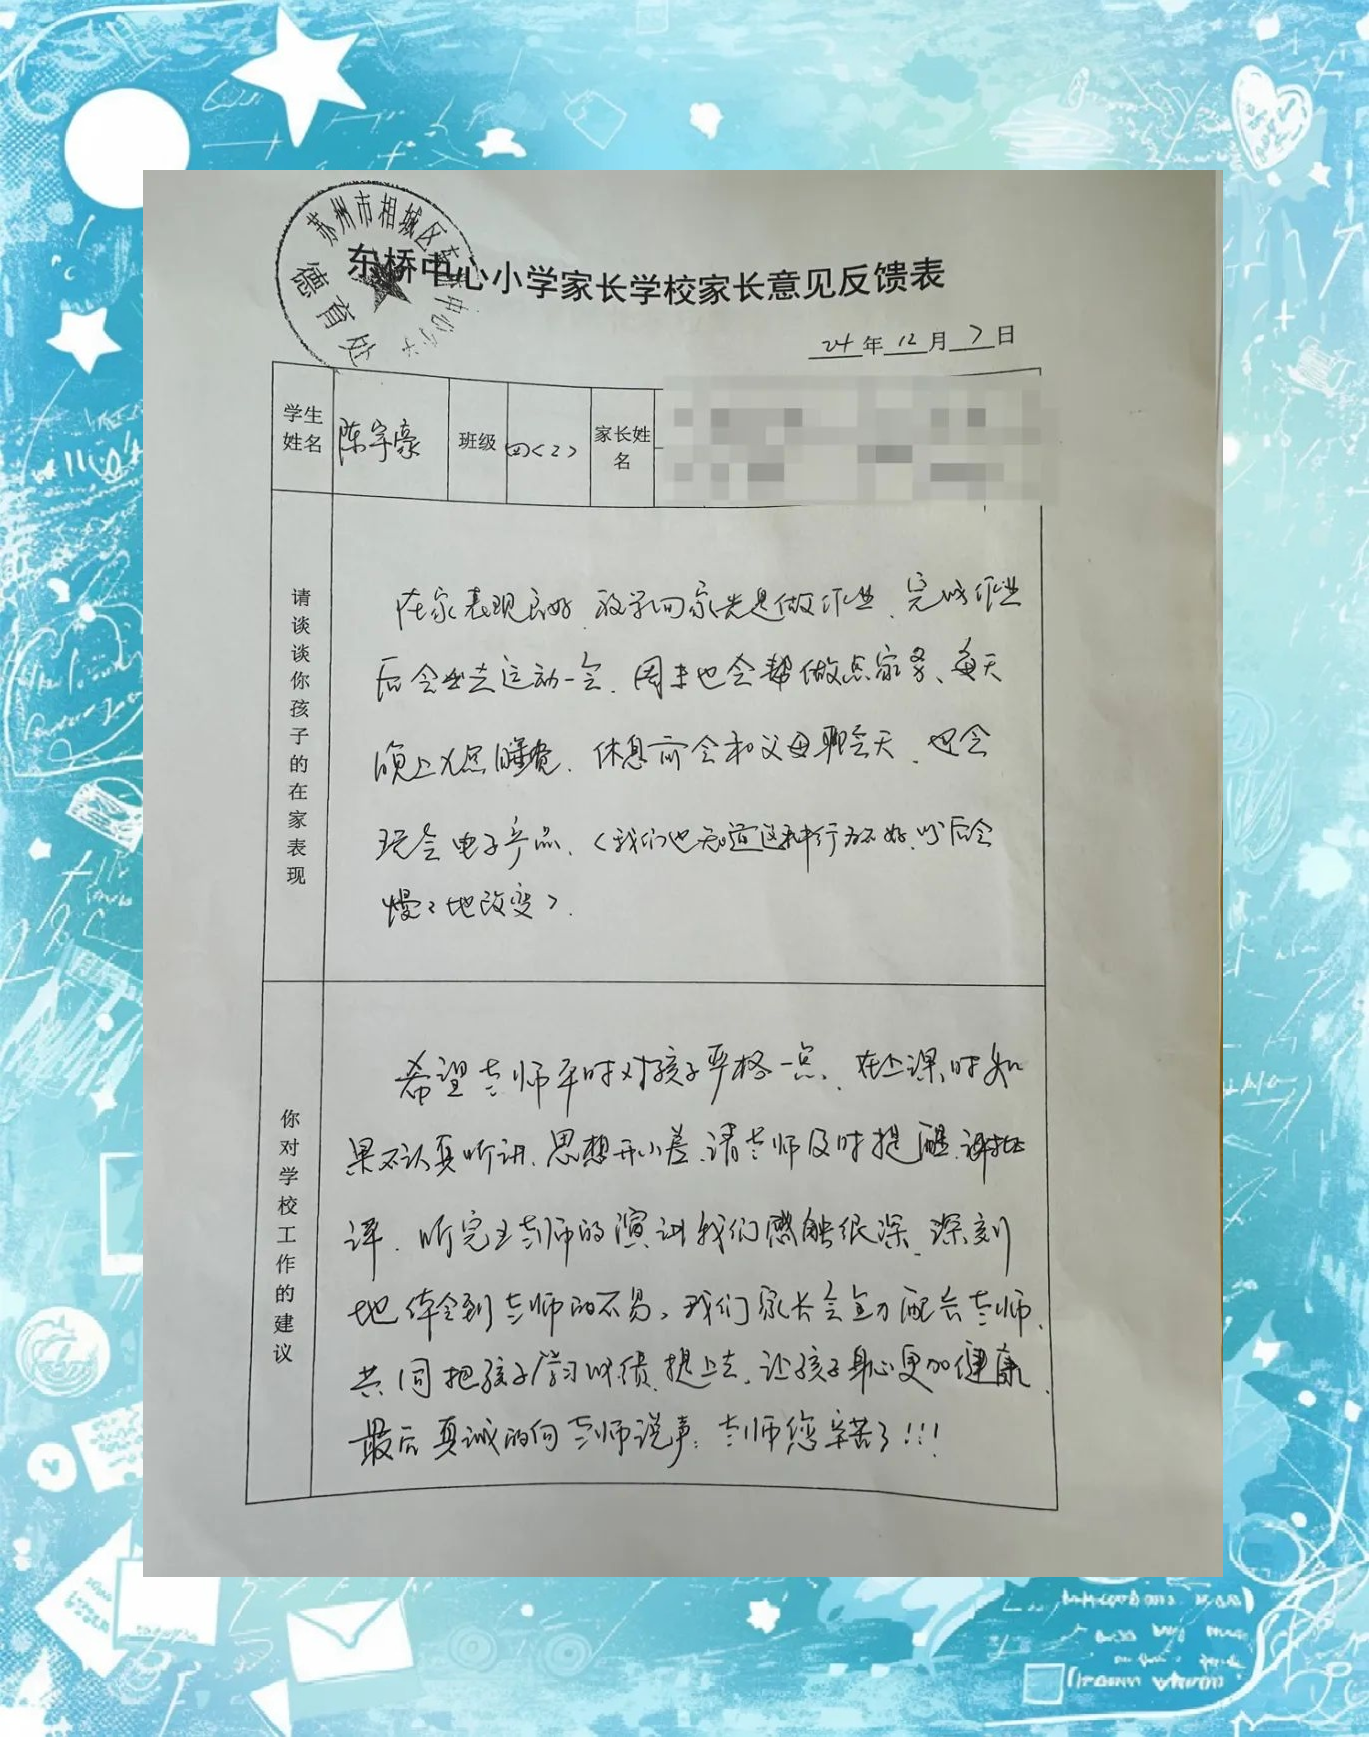 苏州市相城区东桥中心小学
德育处
东桥中心小学家长学校家长意见反馈表
24年12月7日
学生姓名 陈宇豪 班级 四<2> 家长姓名
请谈谈你孩子的在家表现
在家表现良好,放学回家先是做作业,完成作业
后会出去运动一会,周末也会帮做点家务、每天
晚上九点睡觉,休息前会和父母聊会天,也会
玩会电子产品,(我们也知道这种行为不好,以后会
慢々地改变)。
你对学校工作的建议
希望老师平时对孩子严格一点,在上课时如
果不认真听讲,思想开小差,请老师及时提醒,谢批
评,听完王老师的演讲我们感触很深,深刻
地体会到老师的不易,我们家长会全力配合老师,
共同把孩子学习成绩提上去,让孩子身心更加健康,
最后真诚的向老师说声:老师您辛苦了!!!